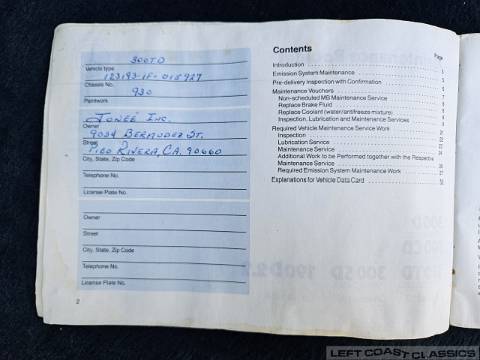 300TD
Vehicle type
123193-1F-015927
Chassis No.
930
Paintwork
Jonee Inc.
Owner
9034 Bermudez St.
Street
Pico Rivera, CA. 90660
City, State, Zip Code
Telephone No.
License Plate No.
Owner
Street
City, State, Zip Code
Telephone No.
License Plate No.
2
Contents
Page
Introduction
Emission System Maintenance
Pre-delivery inspection with Confirmation
Maintenance Vouchers
Non-scheduled MB Maintenance Service
Replace Brake Fluid
Replace Coolant (water/antifreeze mixture)
Inspection, Lubrication and Maintenance Services
Required Vehicle Maintenance Service Work
Inspection
Lubrication Service
Maintenance Service
Additional Work to be Performed together with the Respective
Maintenance Service
Required Emission System Maintenance Work
Explanations for Vehicle Data Card
LEFT COAST CLASSICS